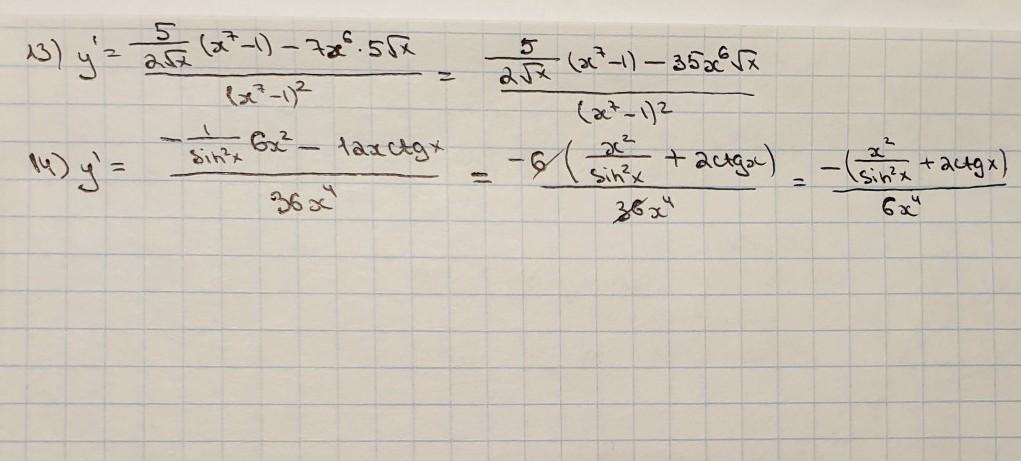 13) y' = (5/(2√x) (x⁷-1) - 7x⁶ · 5√x)/(x⁷-1)² = (5/(2√x) (x⁷-1) - 35x⁶√x)/(x⁷-1)²
14) y' = (-1/sin²x 6x² - 12x ctgx)/36x⁴ = -6(x²/sin²x + 2ctgx)/36x⁴ = -(x²/sin²x + 2ctgx)/6x⁴